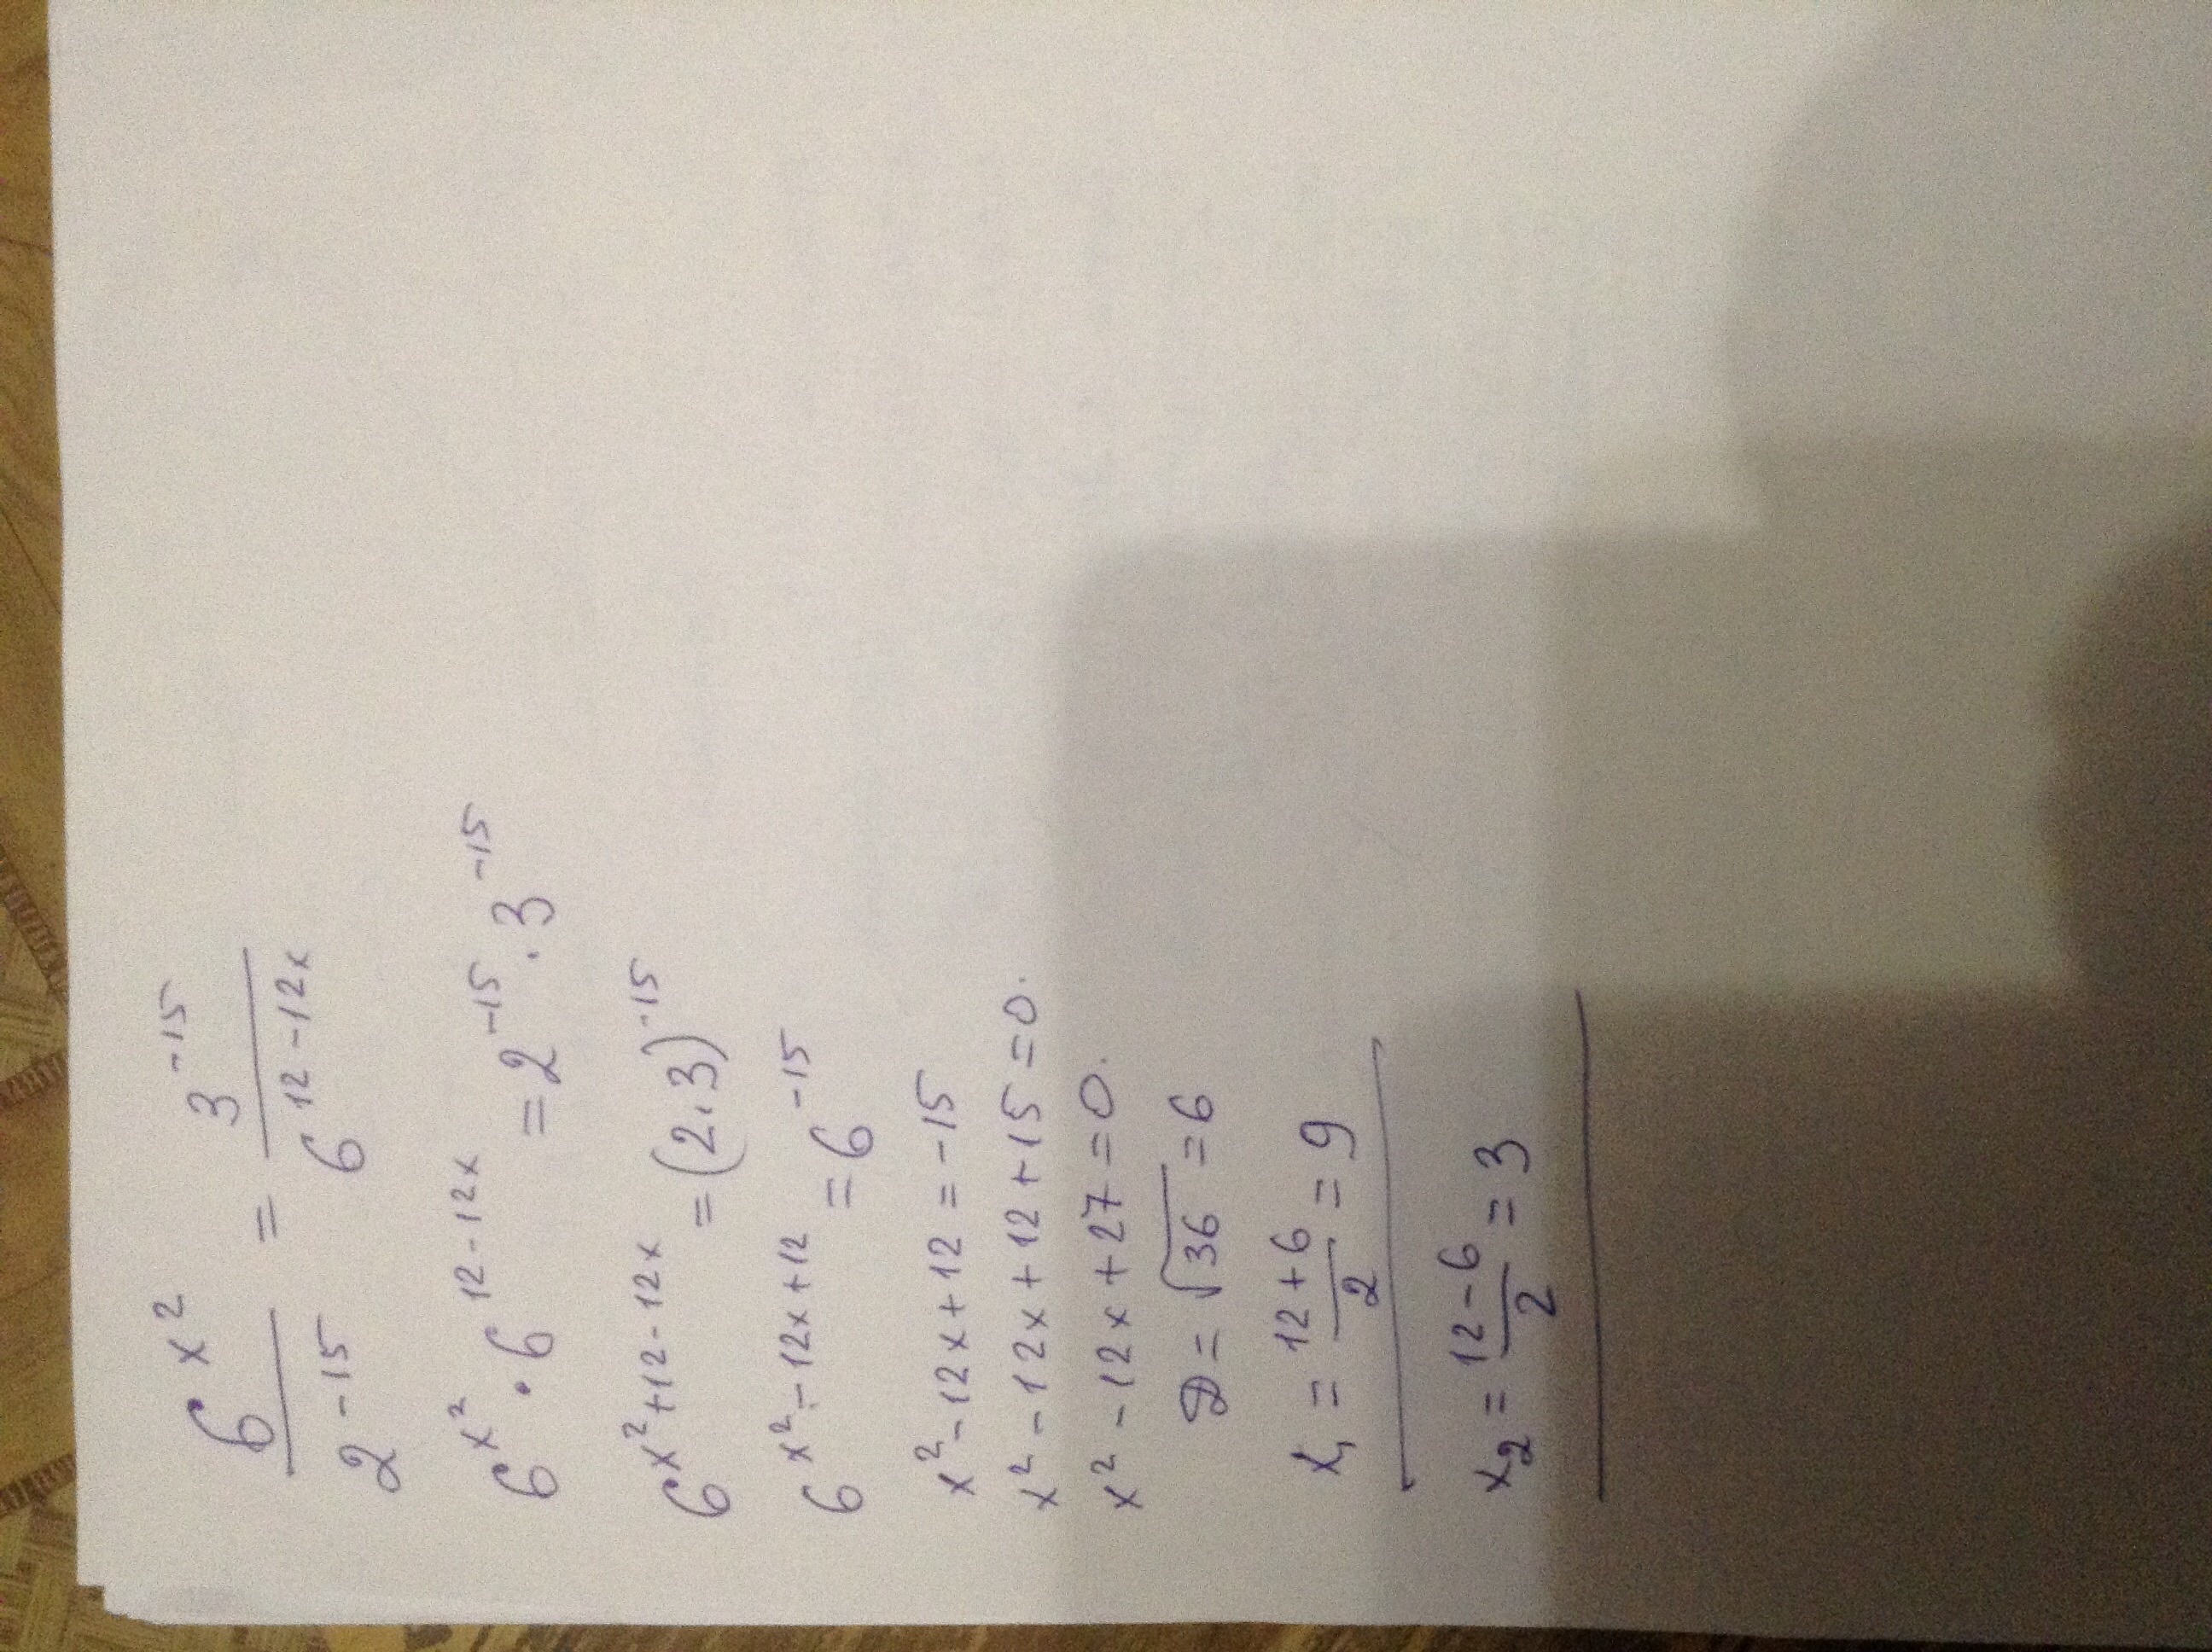 6^{x^2} / 2^{-15} = 3^{-15} / 6^{12-12x}
6^{x^2} · 6^{12-12x} = 2^{-15} · 3^{-15}
6^{x^2+12-12x} = (2·3)^{-15}
6^{x^2-12x+12} = 6^{-15}
x^2-12x+12=-15
x^2-12x+12+15=0.
x^2-12x+27=0.
D=√36=6
x_1 = (12+6)/2 = 9
x_2 = (12-6)/2 = 3